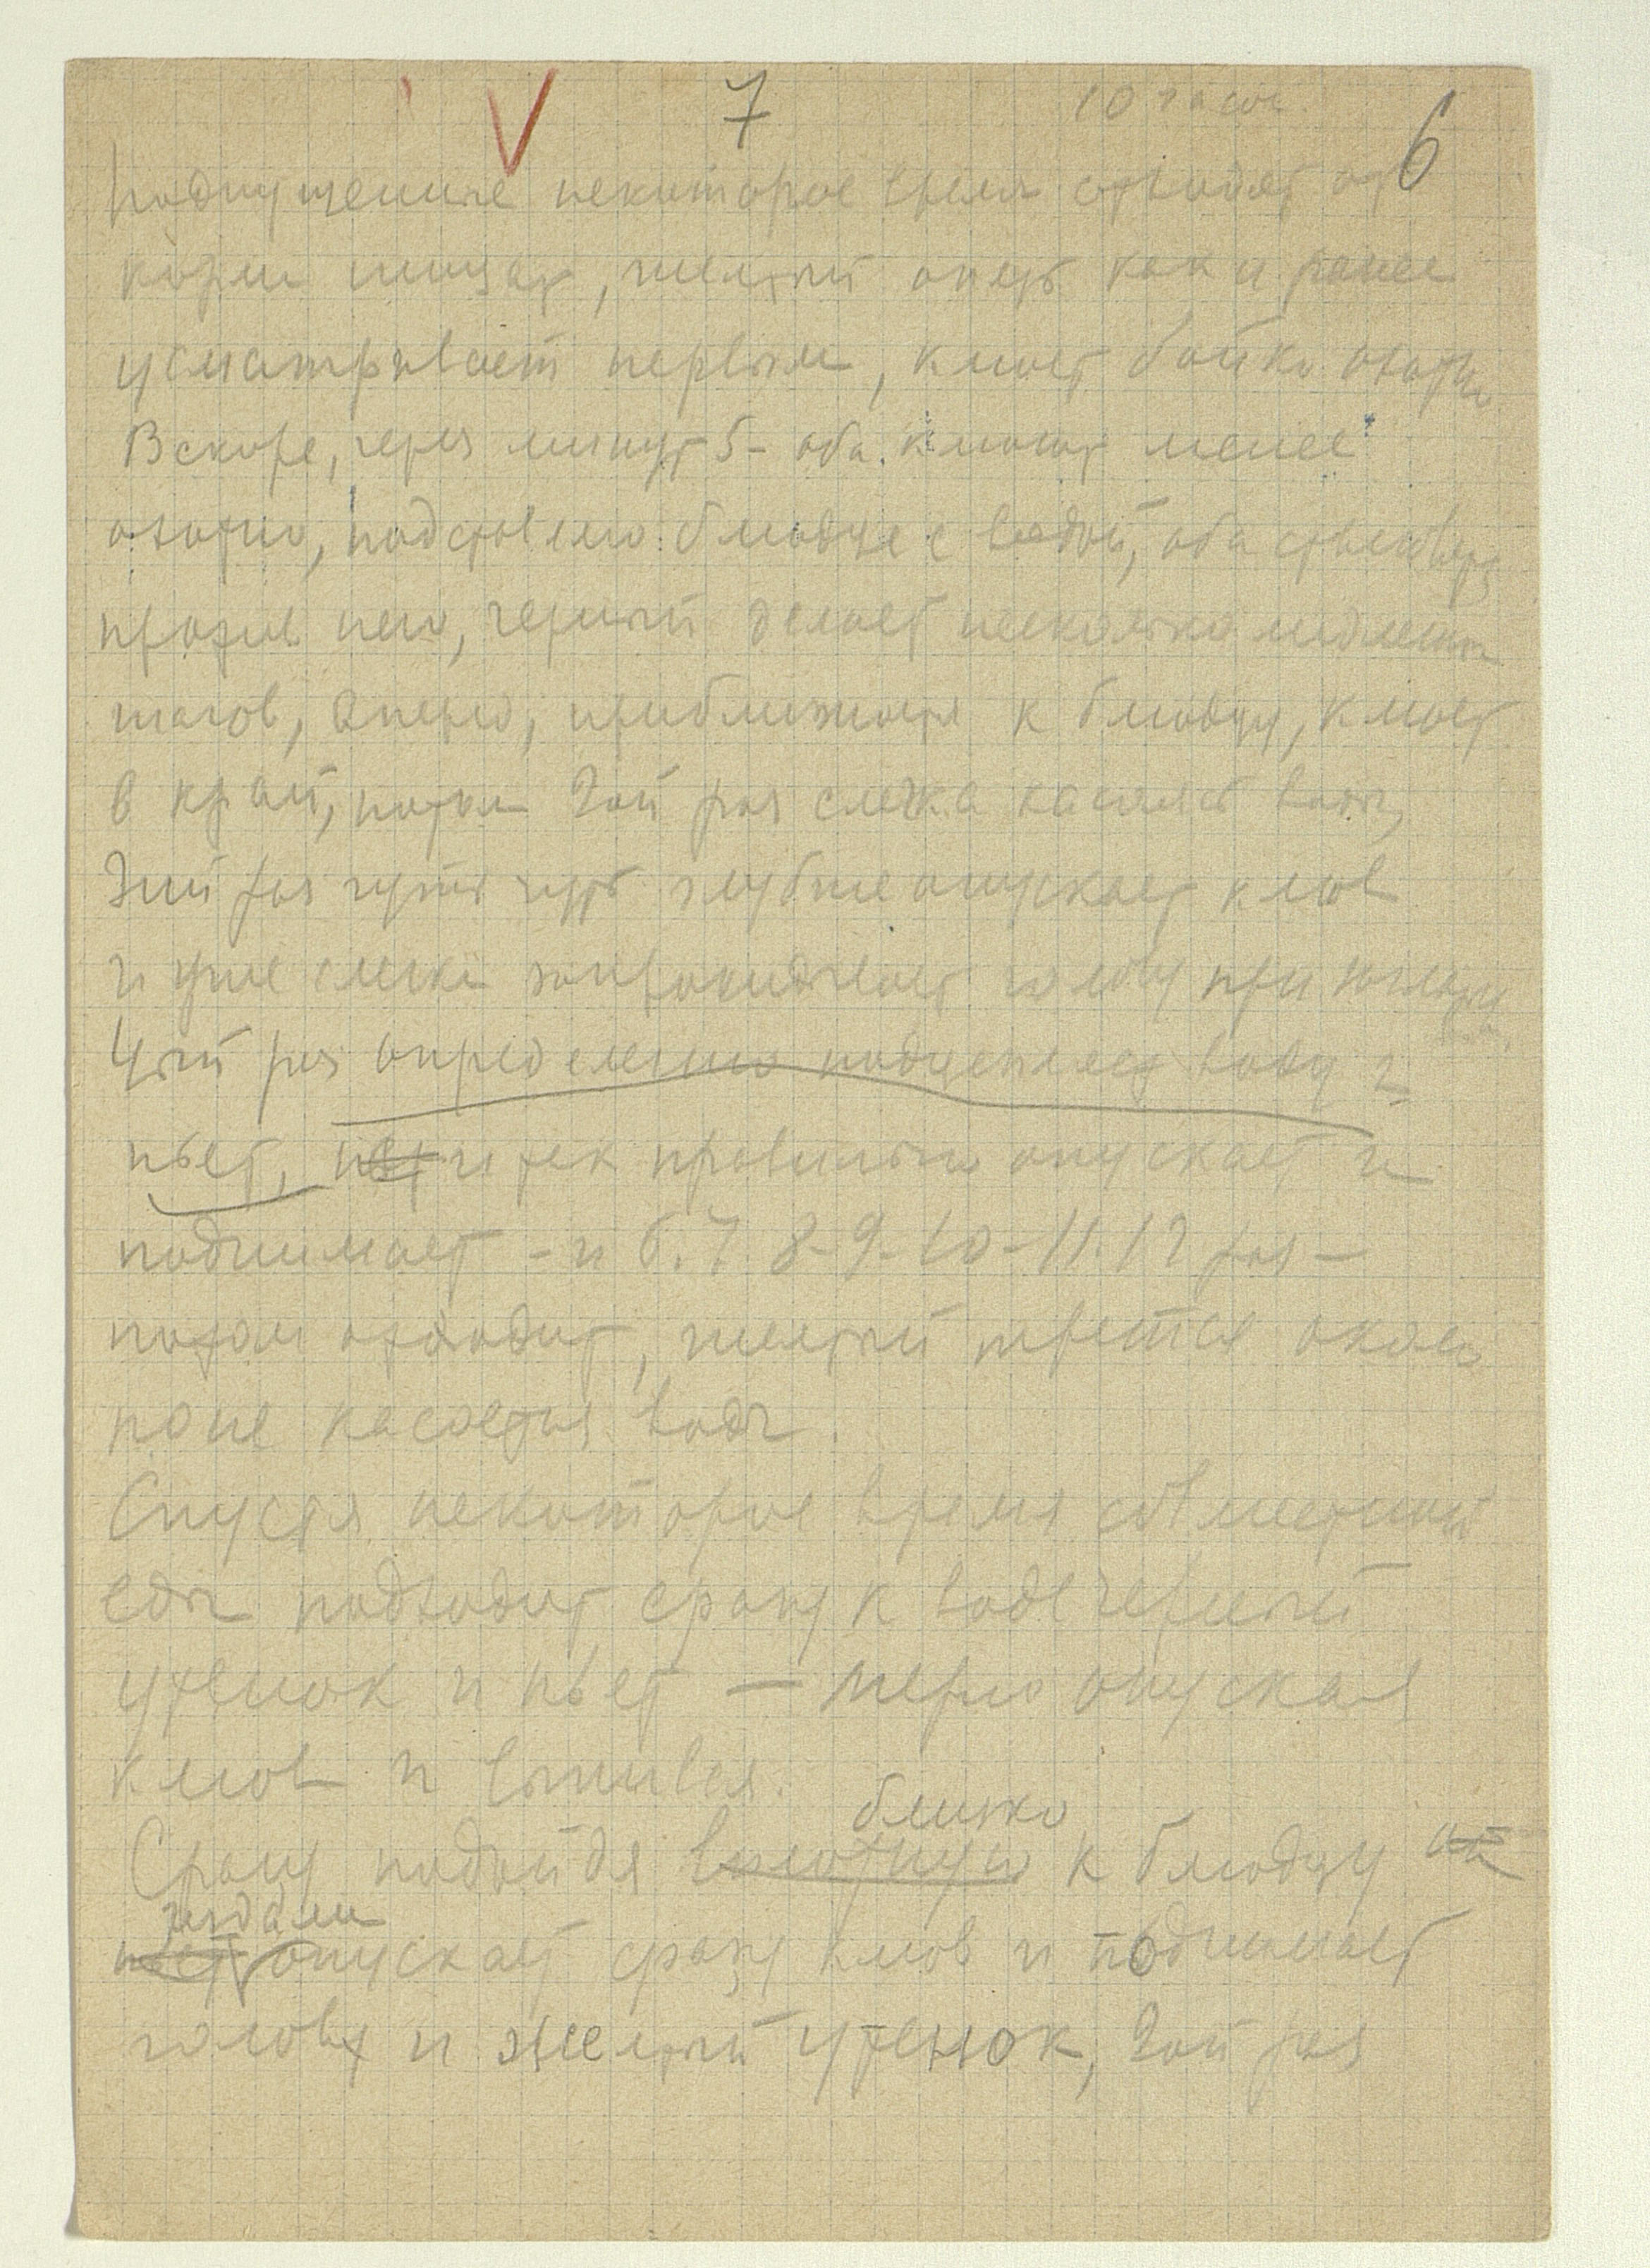 V 7 10 часов. 6
некоторое время отходят от
корм пищат, желтый опять как и ранее
усматривает первым, клюет бойко охотно
Вскоре, через минут 5 - оба клюют менее
охотно, подставлено блюдце с водой, оба
против него, черный делает несколько медленн
шагов, вперед, приближается к блюдцу, клюет
в край, потом 2ой раз слегка касаясь воды,
3ий раз чуть чуть глубже опускает клюв
и уже слегка запрокидывает голову при
4ый раз определенно воду и
пьет, и так правильно опускает и
поднимает - и 6. 7. 8-9-10-11. 12 раз -
потом отходит, желтый трется около
но не касается воды.
Спустя некоторое время совместной
еды подходит сразу к воде черный
утенок и пьет — мерно опуская
клюв и
близко
Сразу подойдя вплотную к блюдцу
опускает сразу клюв и поднимает
голову и желтый утенок, 2ой раз